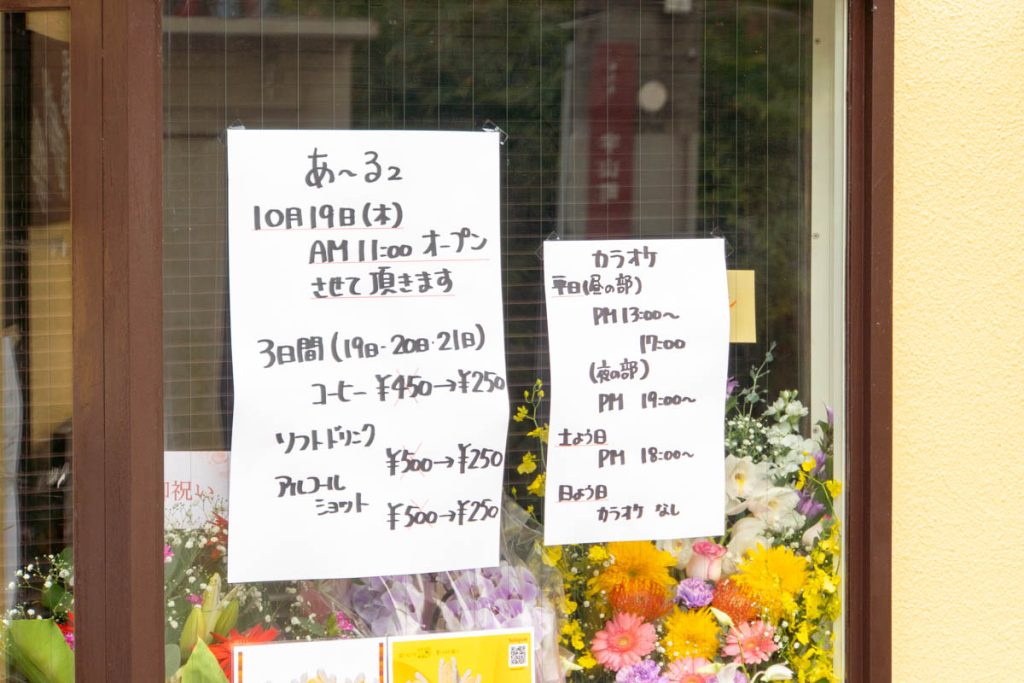 あ〜る2
10月19日(木)
AM 11:00 オープン
させて頂きます
3日間(19日・20日・21日)
コーヒー ¥450→¥250
ソフトドリンク
¥500→¥250
アルコール
ショット
¥500→¥250
カラオケ
平日(昼の部)
PM 13:00〜
17:00
(夜の部)
PM 19:00〜
土よう日
PM 18:00〜
日よう日
カラオケ なし
御祝い